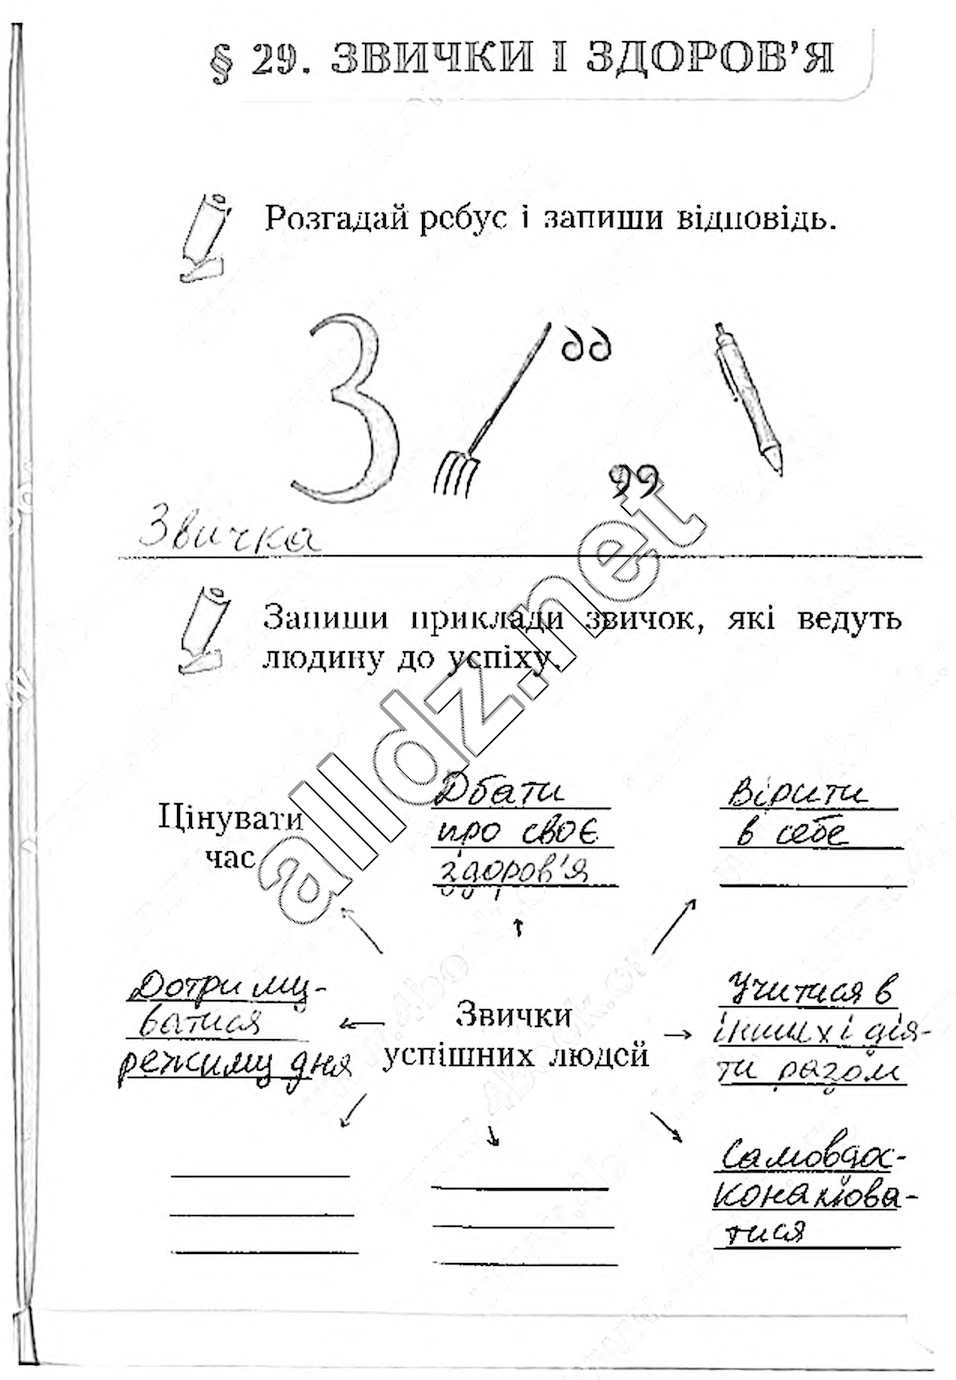 § 29. ЗВИЧКИ І ЗДОРОВ’Я
Розгадай ребус і запиши відповідь.
З
Звичка
Запиши приклади звичок, які ведуть
людину до успіху.
Цінувати
час
Дбати
про своє
здоров'я
Вірити
в себе
Дотриму-
ватися
режиму дня
Звички
успішних людей
Учитися в
інших і дія-
ти разом
Самовдос-
коналюва-
тися
alldz.net